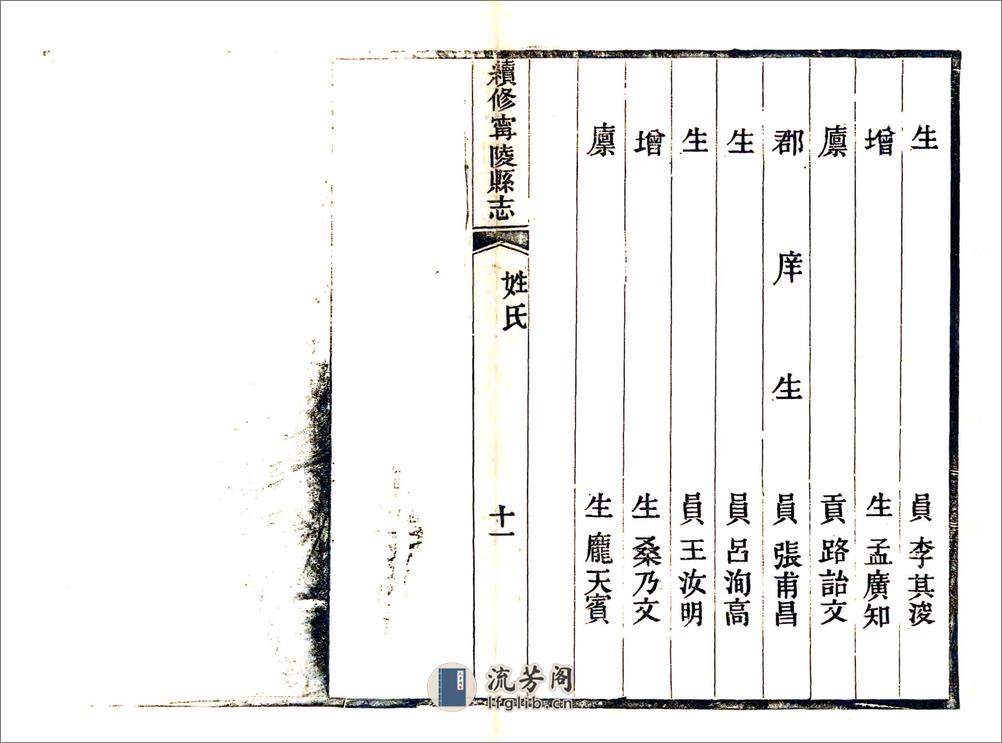 生員李其浚
增生孟廣知
廩貢路詒文
郡庠生員張甫昌
生員呂洵高
生員王汝明
增生桑乃文
廩生龐天賓
續修寧陵縣志
姓氏
十一
流芳阁
lfglib.cn